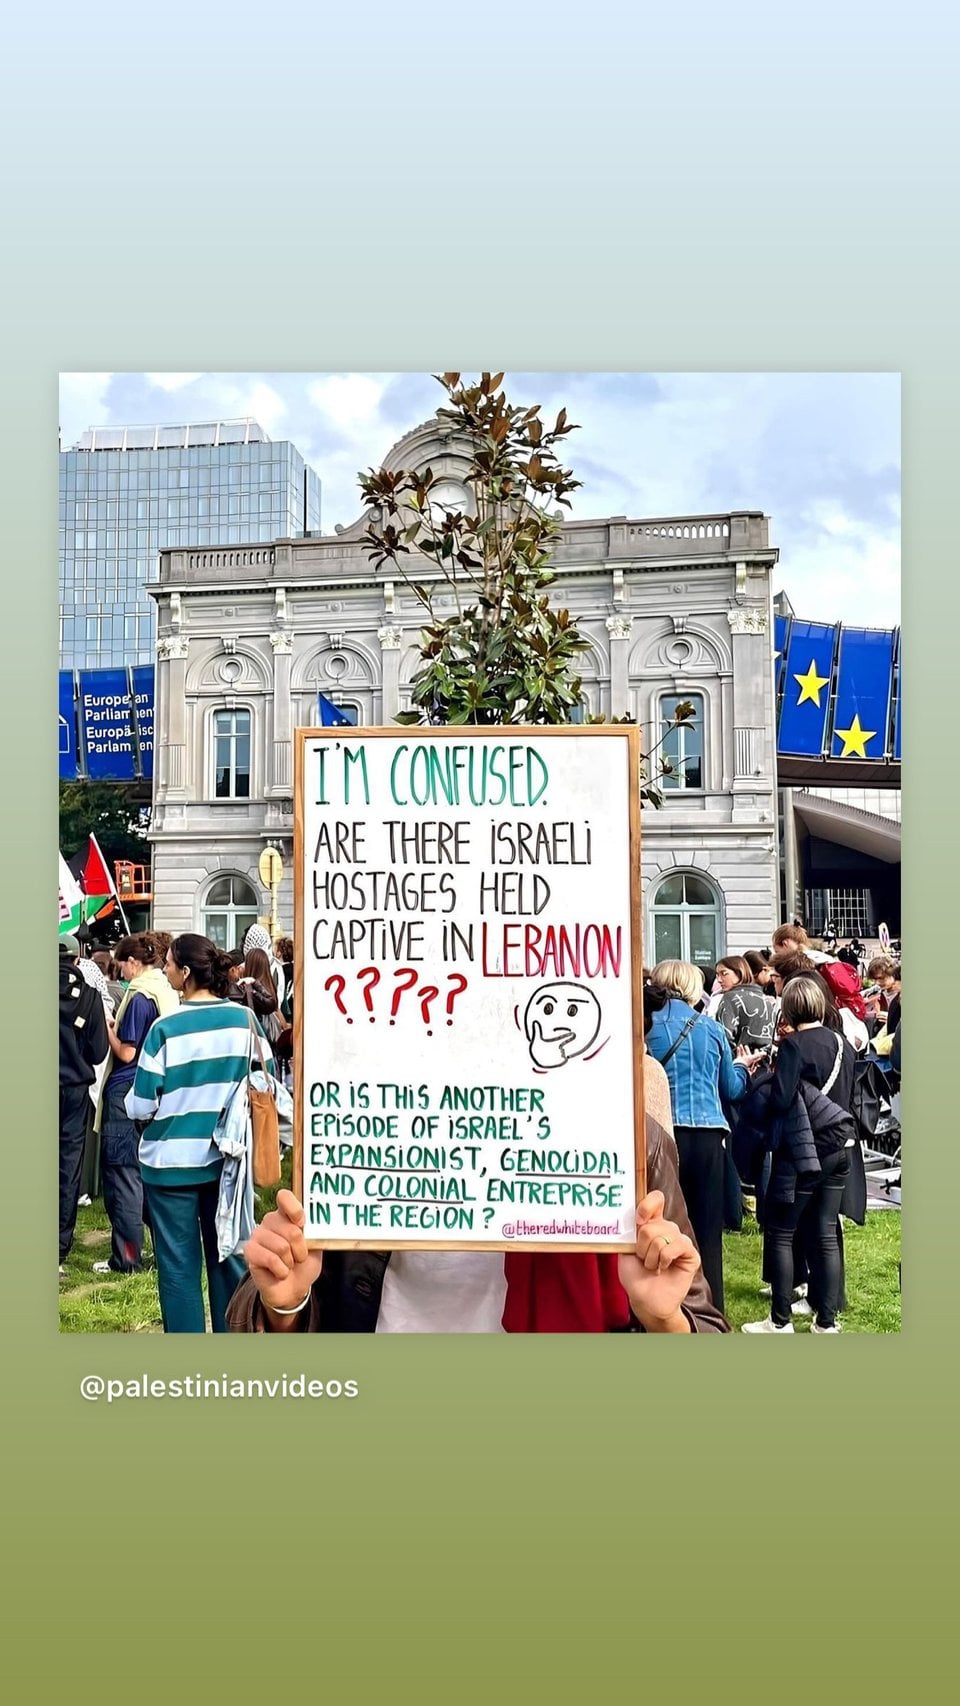 European
Parliament
Europä isc
Parlam en
I'M CONFUSED.
ARE THERE iSRAELi
HOSTAGES HELD
CAPTiVE iN LEBANON
?????
OR iS THiS ANOTHER
EPiSODE OF iSRAEL'S
EXPANSIONIST, GENOCiDAL
AND COLONiAL ENTREPRiSE
iN THE REGiON?
@theredwhiteboard
@palestinianvideos